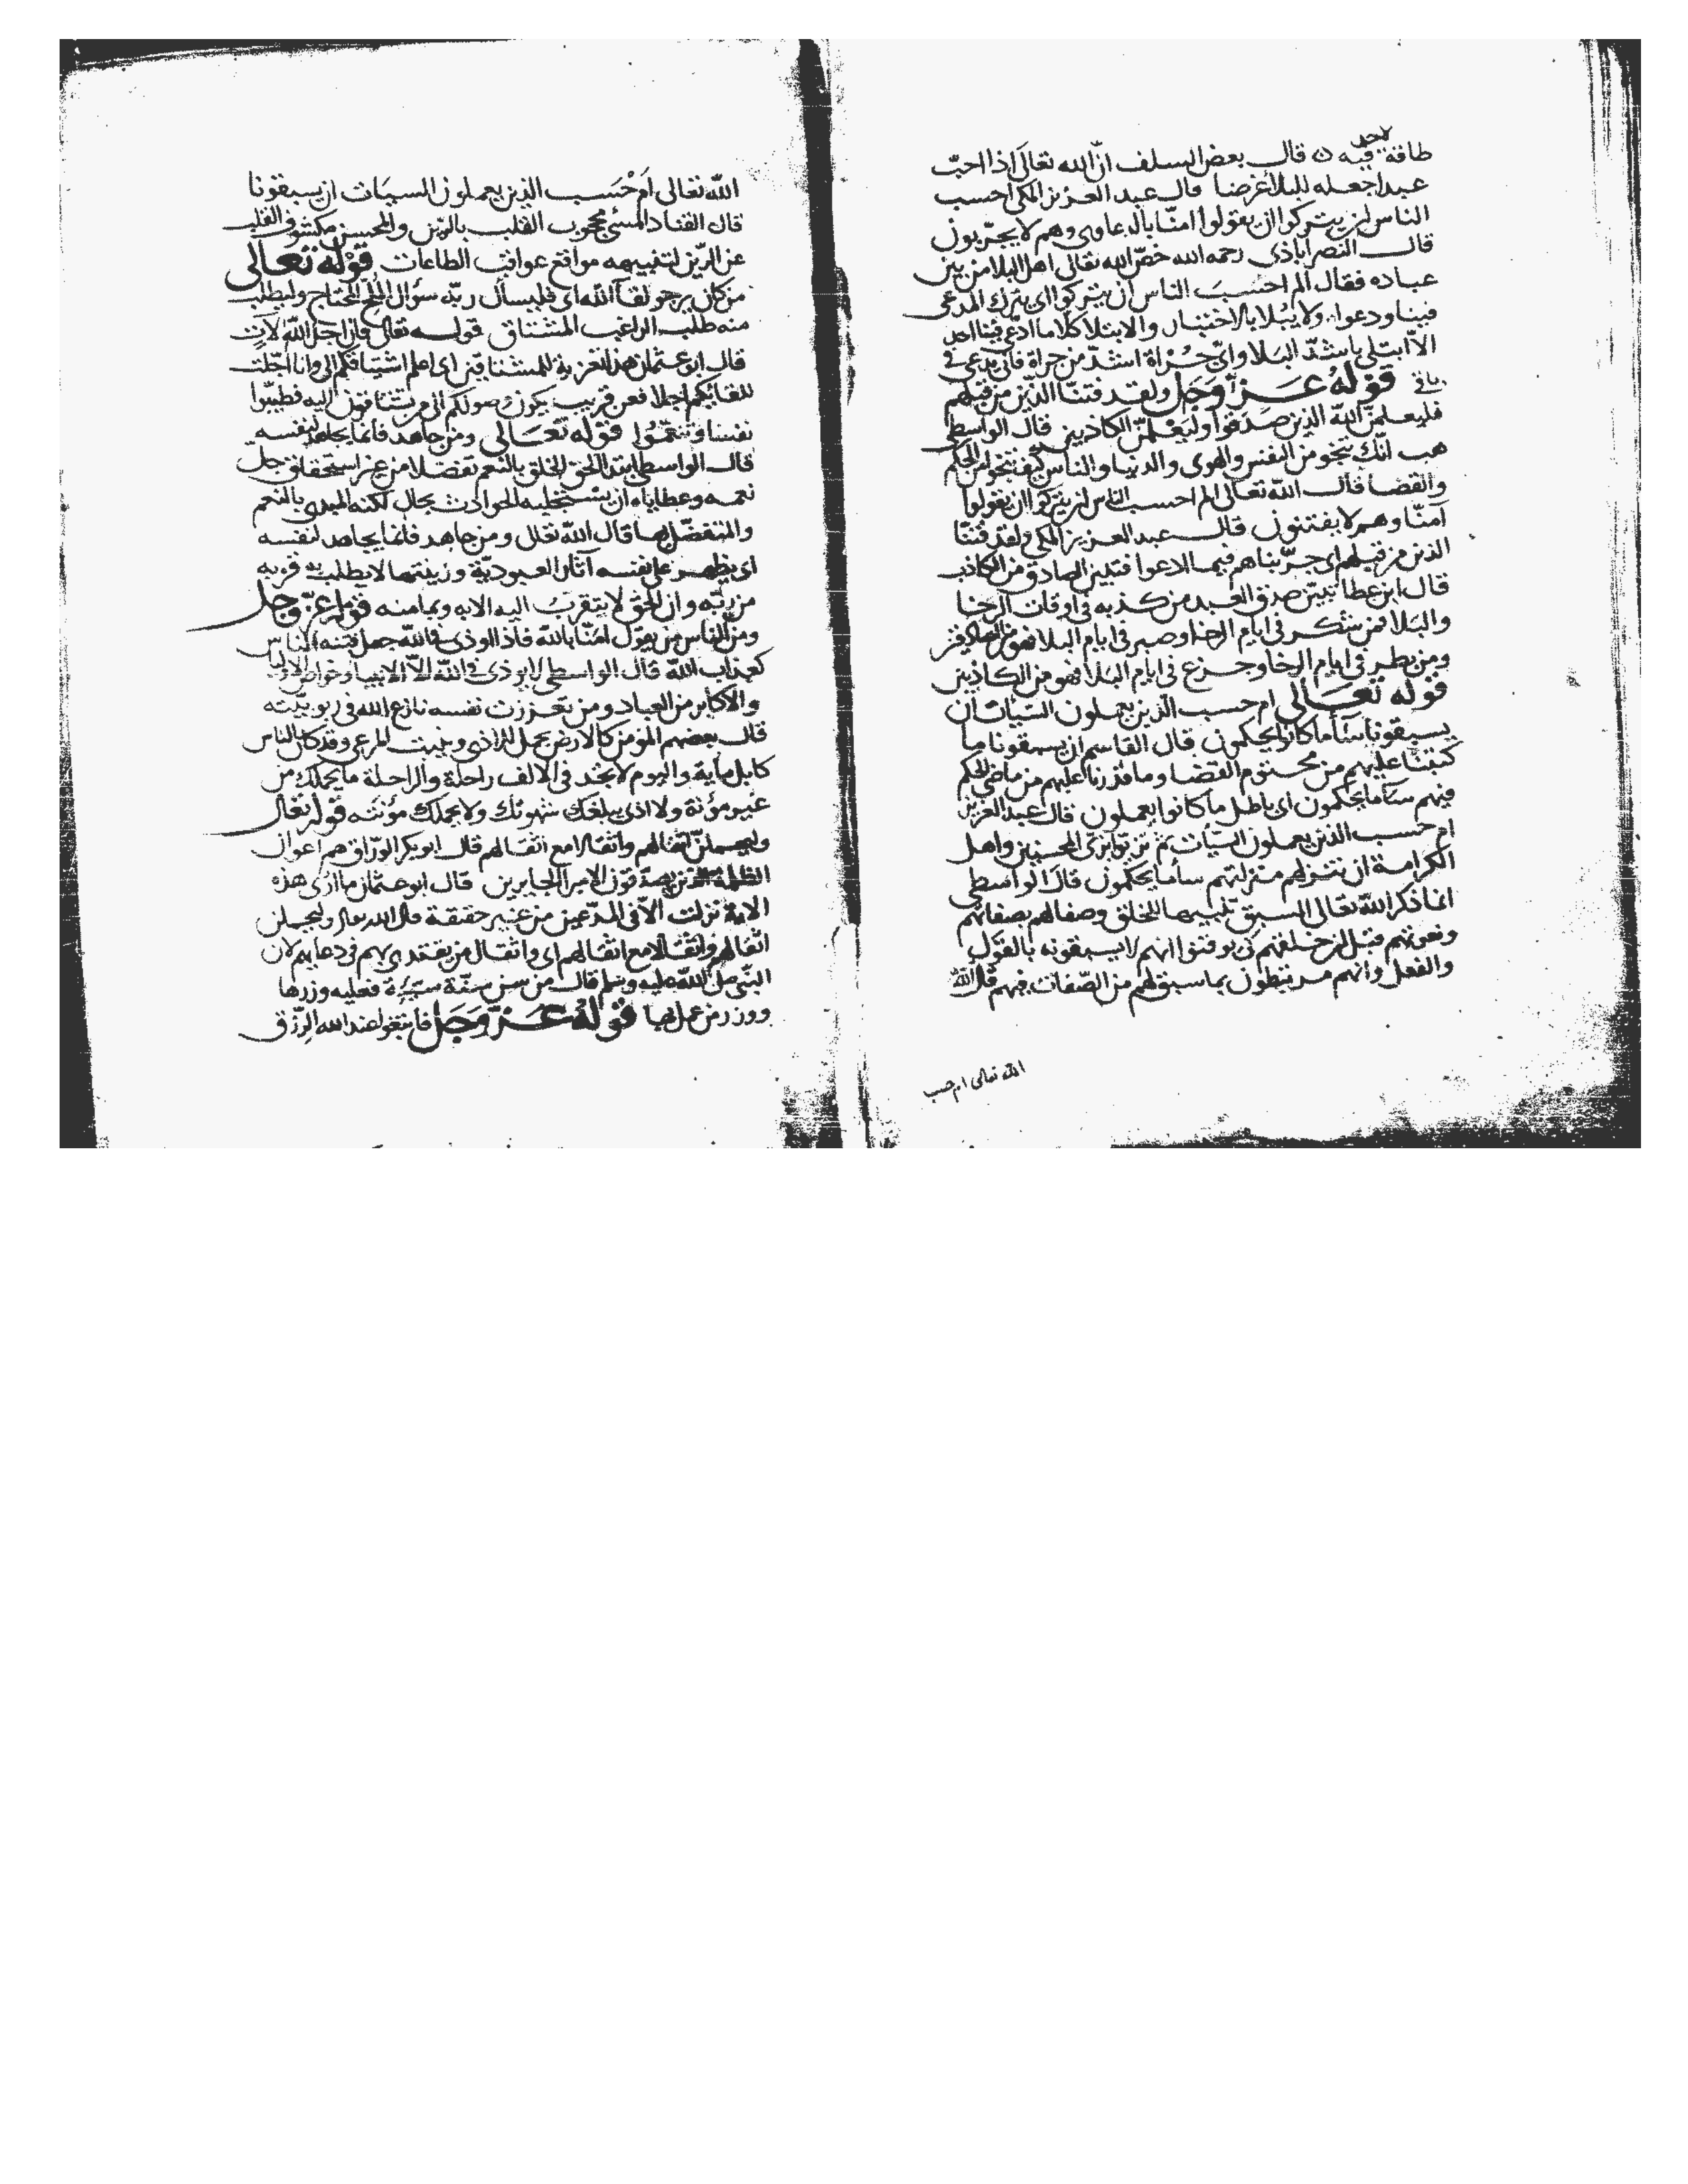 طاقة لاحد فيه ۞ قال بعض السلف انّ الله تعالى اذا احبّ
عبدا جعله للبلا غرضا قال عبد العزيز المكي احسب
الناس ان يتركوا ان يقولوا امنّا بالدعاوى وهم لا يجرّبون
قال النصراباذى رحمه الله خصّ الله تعالى اهل البلا من بين
عباده فقال الم احسب الناس ان يتركوا اى يترك المدعى
فينا ودعواه ولا يبلا بالاختبار والابتلا كلا ما ادّعى فينا احد
الاّ ابتلى باشدّ البلا واىّ جُرْاة اشدّ من جراة فانى يدعى فى
باقى قوله عزّ وجل ولقد فتنّا الذين من قبلهم
فليعلمنّ الله الذين صدقوا وليعلمنّ الكاذبين قال الواسطى
هب انّك تنجو من النفس والهوى والدنيا والناس كيف تنجو من الحكم
والقضا قال الله تعالى الم احسب الناس ان يتركوا ان يقولوا
آمنّا وهم لا يفتنون قال عبد العزيز المكى ولقد فتنّا
الذين من قبلهم اى جرّبناهم فيما ادعوا فتبين الصادق من الكاذب
قال ابن عطا تبيّن صدق العبد من كذبه فى اوقات الرخا
والبلا فمن شكر فى ايام الرخا وصبر فى ايام البلا فهو من الصادقين
ومن بطر فى ايام الرخا وجزع فى ايام البلا فهو من الكاذبين
قوله تعالى ام حسب الذين يعملون السّيّات ان
يسبقونا سآ ما كانوا يحكمون قال القاسم ان يسبقونا ما
كتبنا عليهم من محتوم القضا وما قدرنا عليهم من ماضى الحكم
فيهم سآ ما يحكمون اى باطل ما كانوا يعملون قال عبد العزيز
ام حسب الذين يعملون السّيّات ثم تزيّوا بزىّ المحسنين واهل
الكرامة ان ننزلهم منزلتهم سأ ما يحكمون قال الواسطى
انما ذكر الله تعالى السبق تنبيها للخلق وصفا لهم بصفاتهم
ونعوتهم قبل ان خلقهم كى يوقنوا انهم لا يسبقونه بالقول
والفعل وانهم مرتبطون بما سبق لهم من الصّفات فيهم قال الله
الله تعالى ام حسب
الله تعالى ام حَسب الذين يعملون السيات ان يسبقونا
قال القناد المسئ محجوب القلب بالرّين والمحسن مكشوف القلب
عن الرّين لتنبيهه مواقع عواقب الطاعات قوله تعالى
من كان يرجو لقآ الله اى فليسأل ربّه سؤال الملحّ المحتاج وليطلب
منه طلب الراغب المشتاق قوله تعالى فان اجل الله لآت
قال ابو عثمان هذا تعزية للمشتاقين اى اعلم اشتياقكم الى وانا اجّلت
للقايكم اجلا فعن قريب يكون وصولكم الى من تشتاقون اليه فطيبّوا
نفسا وتنعّموا قوله تعالى ومن جاهد فانما يجاهد لنفسه
قال الواسطى ابتدا الحق الخلق بالنعم تفضلا من غير استحقاق جل
نعمه وعطاياه ان يستجلبه الحوادث بحال لكنه المبدى بالنعم
والمتفضّل بها قال الله تعالى ومن جاهد فانما يجاهد لنفسه
اى يظهر على نفسه آثار العبوديّة وزينتها لا يطلب به قربه
من ربّه وان الحق لا يتقرّب اليه الا به وبما منه قوله عزّ وجل
ومن الناس من يقول امنّا بالله فاذا اوذى فى الله جعل فتنة الناس
كعذاب الله قال الواسطى لا يوذى فى الله الاّ الانبيا وخواص الاوليا
والاكابر من العباد ومن تعززت نفسه نازع الله فى ربوبيّته
قال بعضهم المؤمن كالارض يحمل الاذى وينبت المرعى وقد كان الناس
كابل ماية واليوم لا يجد فى الالف راحلة والراحلة ما يحملك من
غير مؤنة ولا اذى يبلغك شهوتك ولا يحملك مؤنته قوله تعالى
وليحملنّ اثقالهم واثقالا مع اثقالهم قال ابو بكر الورّاق هم اعوان
الظلمة الذين يصدّقون الامرا الجايرين قال ابو عثمان ما ارى هذه
الاية نزلت الاّ فى المدّعين من غير حقيقة قال الله تعالى وليحملن
اثقالهم واثقالا مع اثقالهم اى واثقال من يقتدى بهم فى دعاويهم لان
النّبى صلى الله عليه وسلم قال من سن سنّة سيّئة فعليه وزرها
ووزر من عمل بها قوله عزّ وجل فابتغوا عند الله الرّزق